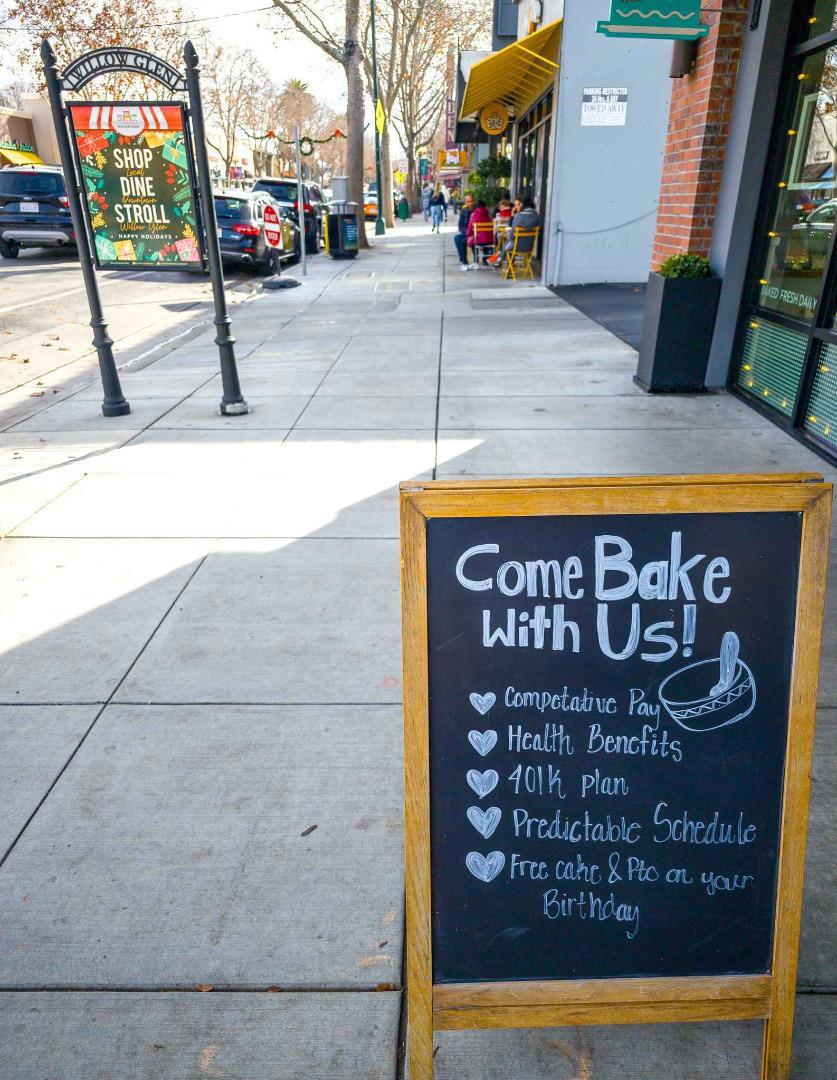 WILLOW GLEN
SHOP
Local
DINE
Downtown
STROLL
Willow Glen
HAPPY HOLIDAYS
PARKING RESTRICTED
TOWED AWAY
BAKED FRESH DAILY
Come Bake
With Us!
Competative Pay
Health Benefits
401K plan
Predictable Schedule
Free cake & Pto on your
Birthday